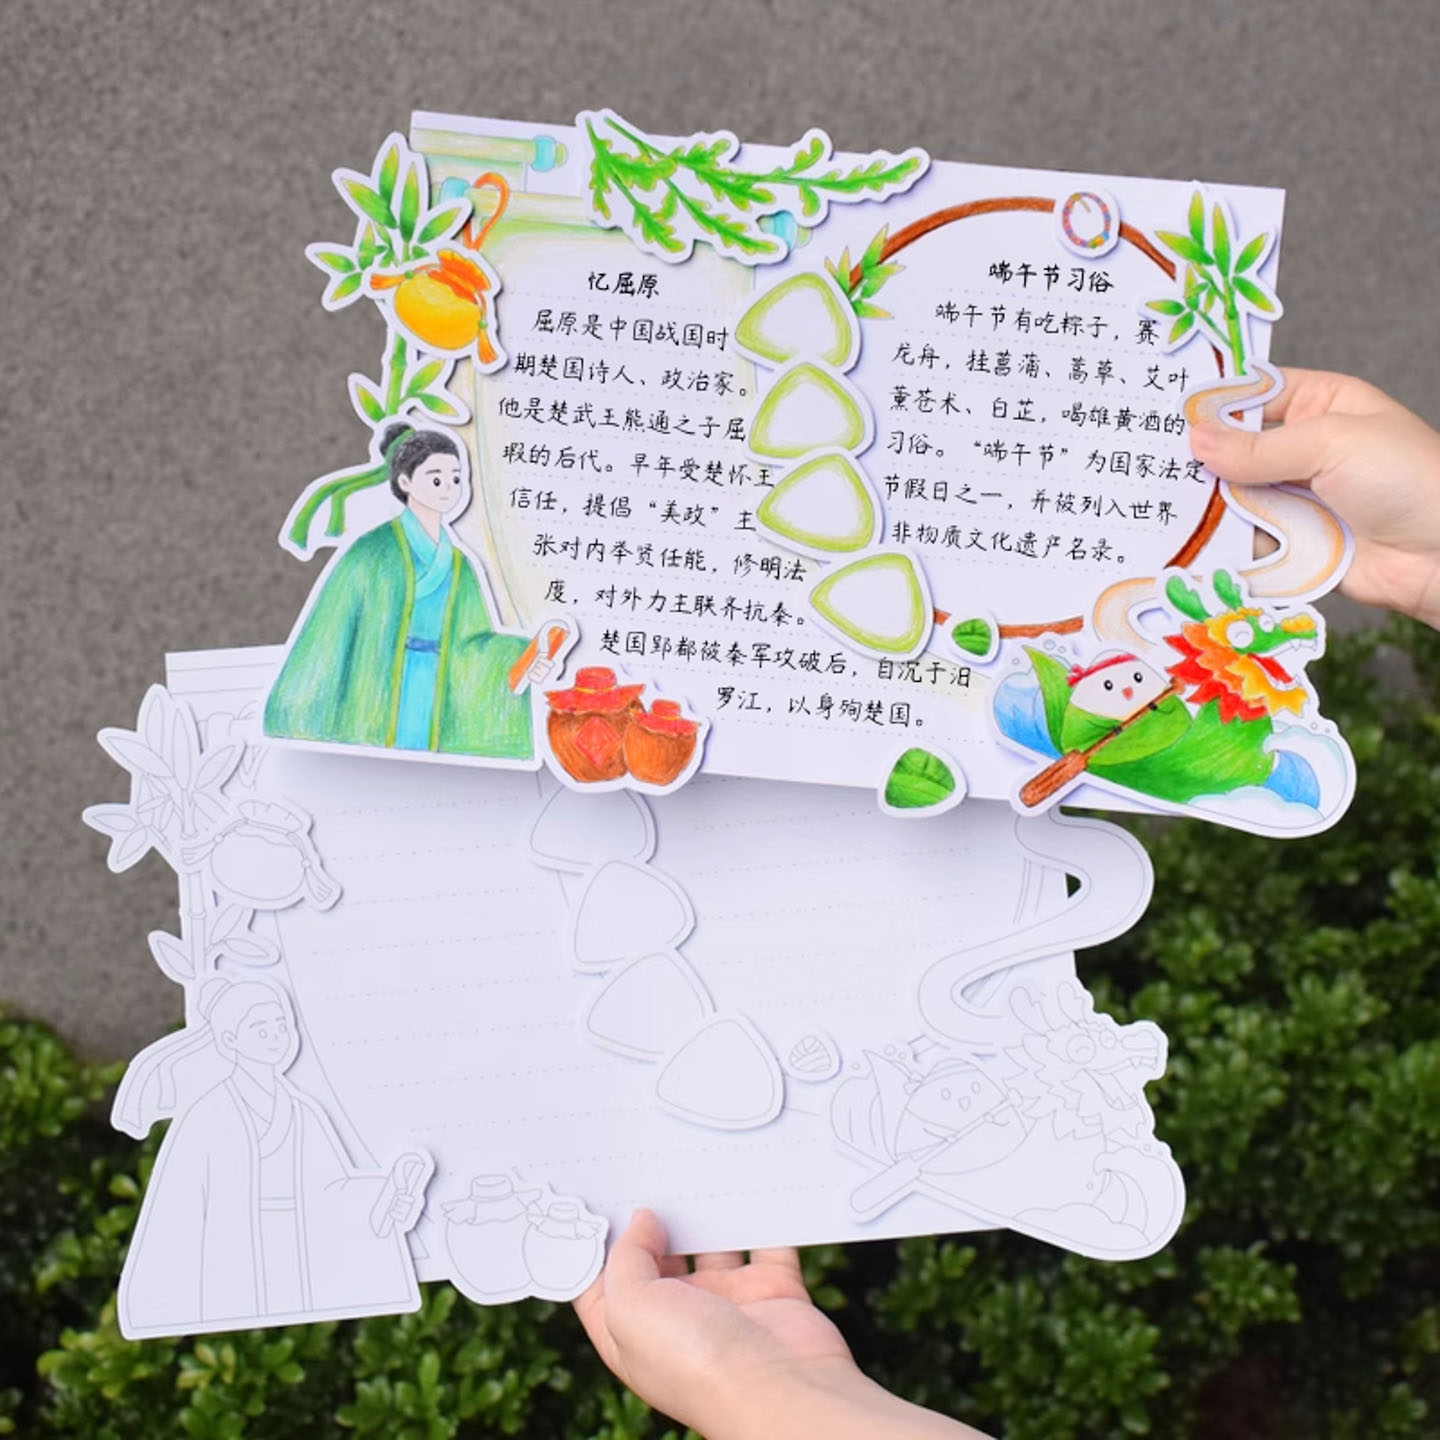 忆屈原
屈原是中国战国时
期楚国诗人、政治家。
他是楚武王熊通之子屈
瑕的后代。早年受楚怀王
信任，提倡“美政”主
张对内举贤任能，修明法
度，对外力主联齐抗秦。
楚国郢都被秦军攻破后，自沉于汨
罗江，以身殉楚国。
端午节习俗
端午节有吃粽子，赛
龙舟，挂菖蒲、蒿草、艾叶
薰苍术、白芷，喝雄黄酒的
习俗。“端午节”为国家法定
节假日之一，并被列入世界
非物质文化遗产名录。